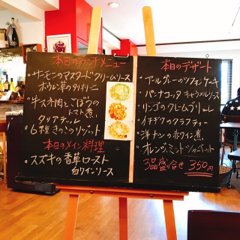 本日のランチメニュー
・サーモンのマスタードクリームソース
ホウレン草のタリオリーニ
・牛スネ肉とごぼうの
トマト煮
タリアテッレ
・6種きのこのリゾット
本日のメイン料理
・スズキの香草ロースト
白ワインソース
本日のデザート
・アールグレーのシフォンケーキ
・パンナコッタ キャラメルソース
・リンゴのクレームブリュレ
・イチヂクのクラフティー
・洋ナシの赤ワイン煮
・オレンジとミントの
盛合せ 350円